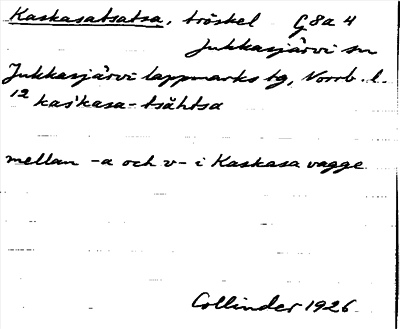 Kaskasatsatsa, tröskel G 8 a 4
Jukkasjärvi sn
Jukkasjärvi lappmarks tg, Norrb. l.
12 kas'kasa-tsàhtsa
mellan -a och v- i Kaskasavagge
Collinder 1926